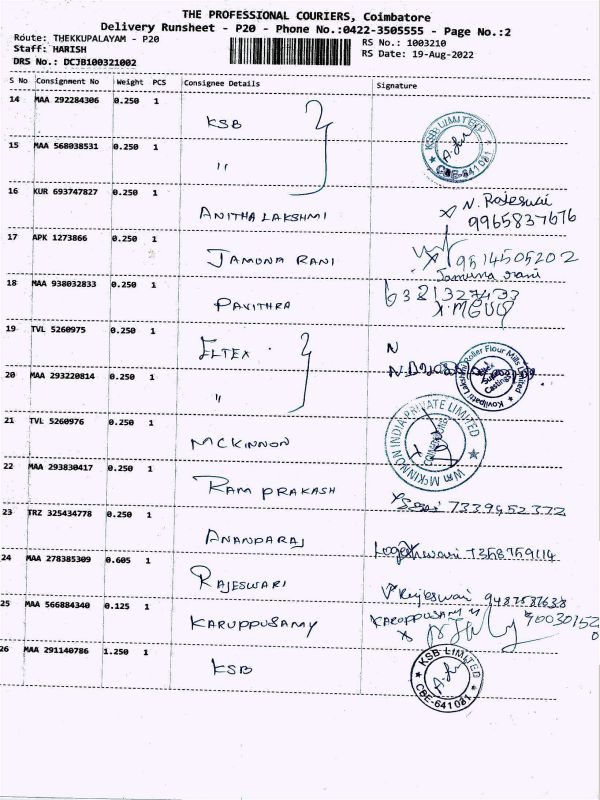 THE PROFESSIONAL COURIERS, Coimbatore
Delivery Runsheet - P20 - Phone No.:0422-3505555 - Page No.:2
Route: THEKKUPALAYAM - P20
RS No.: 1003210
Staff: HARISH
RS Date: 19-Aug-2022
DRS No.: DCJB100321002
S No Consignment No Weight PCS Consignee Details Signature
14 MAA 292284306 0.250 1 KSB
KSB LIMITED CBE-641 081
15 MAA 568038531 0.250 1 "
16 KUR 693747827 0.250 1 ANITHA LAKSHMI N. Rajeswari 9965837676
17 APK 1273866 0.250 1 JAMUNA RANI 9514505202
Jamuna rani
18 MAA 938032833 0.250 1 PAVITHRA 6381327433
19 TVL 5260975 0.250 1 ELTEX N
20 MAA 293220814 0.250 1 "
Kovilpatti Lakshmi Roller Flour Mills Limited
21 TVL 5260976 0.250 1 MCKINNON
MCKINNON INDIA PRIVATE LIMITED
22 MAA 293830417 0.250 1 RAM PRAKASH 7339452372
23 TRZ 325434778 0.250 1 ANANDARAJ Logeshwari 7358759114
24 MAA 278385309 0.605 1 RAJESWARI Rajeswari 9487587638
25 MAA 566884340 0.125 1 KARUPPUSAMY KARUPPUSAMY 90030152
26 MAA 291140786 1.250 1 KSB
KSB LIMITED CBE-641 081